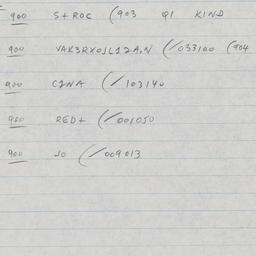 900 S+ROC (903 QI KIND
900 VAK3RX0JL12A,N (/033100 (904
900 C2NA (/103140
900 RED+ (/001050
900 JO (/009013